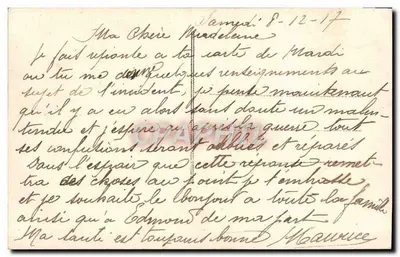 Samedi 8-12-17
Ma Chère Madeleine
Je fais réponse a ta carte de Mardi
ou tu me donne quelques renseignements au
sujet de l'incident, je pense maintenant
qu'il y a eu alors sans doute un malen-
tendu et j'espère qu'après la guerre tout
ses confusions seront oubliés et réparés
Dans l'espoir que cette réponse remet-
tra des choses au point je t'embrasse
et je souhaite le bonjout a toute la famille
ainsi qu'a Edmond de ma part
Ma santé est toujours bonne Maurice